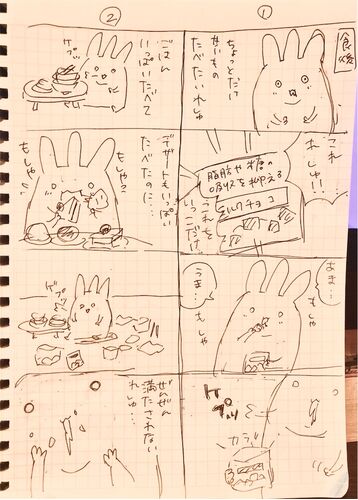 ①
食後
ちょっとだけ
甘いもの
たべたいれしゅ
これ
れしゅ!!
脂肪や糖の
吸収を抑える
ミルクチョコ
これを
いっこだけ!
あま…
もしゃ
うま…
もしゃ
ゲプッ
カラ
②
ごはん
いっぱいたべて
ゲプ
デザートもいっぱい
たべたのに…
もしゃ
もしゃ
ゲプッ
ぜんぜん
満たされない
れしゅ…